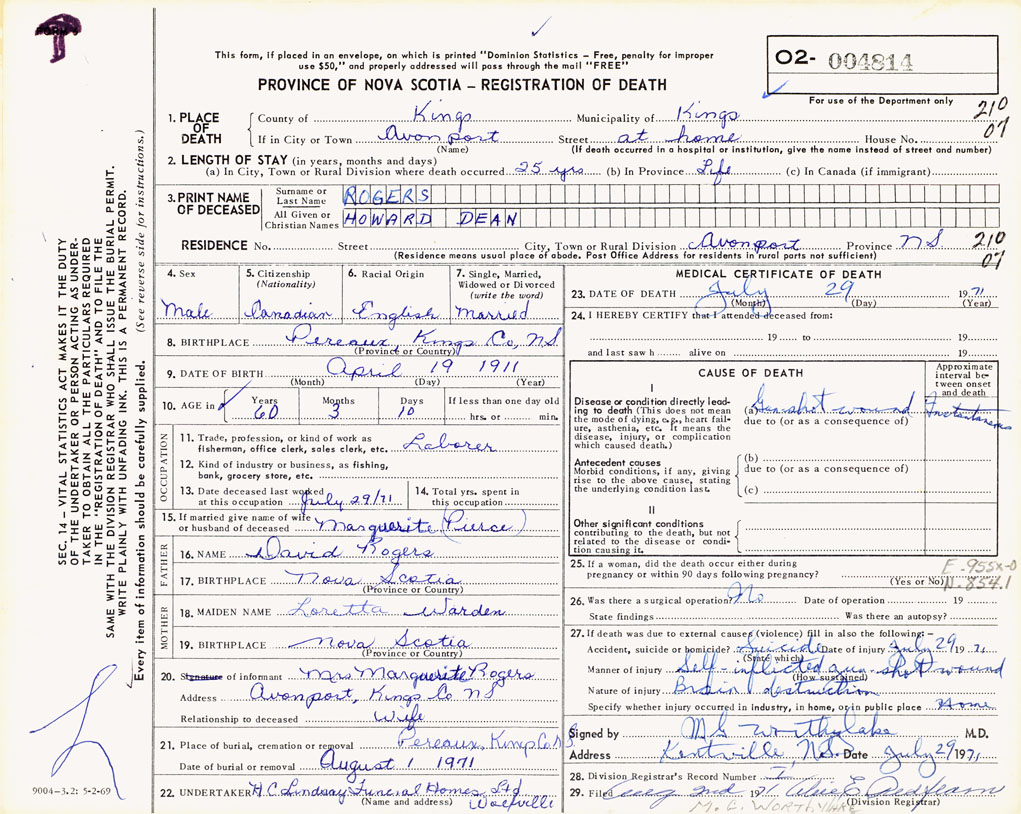 This form, if placed in an envelope, on which is printed "Dominion Statistics – Free, penalty for improper
use $50," and properly addressed will pass through the mail "FREE"
PROVINCE OF NOVA SCOTIA – REGISTRATION OF DEATH
O2- 004814
For use of the Department only
SEC. 14 – VITAL STATISTICS ACT MAKES IT THE DUTY
OF THE UNDERTAKER OR PERSON ACTING AS UNDER-
TAKER TO OBTAIN ALL THE PARTICULARS REQUIRED
IN THE "REGISTRATION OF DEATH" AND TO FILE THE
SAME WITH THE DIVISION REGISTRAR WHO SHALL ISSUE THE BURIAL PERMIT.
WRITE PLAINLY WITH UNFADING INK. THIS IS A PERMANENT RECORD.
Every item of information should be carefully supplied. (See reverse side for instructions.)
1. PLACE OF DEATH County of Kings Municipality of Kings 210
If in City or Town Avonport Street at home House No. 07
(Name) (If death occurred in a hospital or institution, give the name instead of street and number)
2. LENGTH OF STAY (in years, months and days)
(a) In City, Town or Rural Division where death occurred 25 yrs (b) In Province Life (c) In Canada (if immigrant)
3. PRINT NAME OF DECEASED Surname or Last Name ROGERS
All Given or Christian Names HOWARD DEAN
RESIDENCE No. Street City, Town or Rural Division Avonport Province NS 210
(Residence means usual place of abode. Post Office Address for residents in rural parts not sufficient) 07
4. Sex 5. Citizenship (Nationality) 6. Racial Origin 7. Single, Married, Widowed or Divorced (write the word)
Male Canadian English Married
8. BIRTHPLACE Pereaux, Kings Co, NS
(Province or Country)
9. DATE OF BIRTH April 19 1911
(Month) (Day) (Year)
10. AGE in Years Months Days If less than one day old
60 3 10 hrs. or min.
OCCUPATION
11. Trade, profession, or kind of work as
fisherman, office clerk, sales clerk, etc. Laborer
12. Kind of industry or business, as fishing,
bank, grocery store, etc.
13. Date deceased last worked
at this occupation July 29/71
14. Total yrs. spent in
this occupation
15. If married give name of wife
or husband of deceased Marguerite (Pierce)
FATHER
16. NAME David Rogers
17. BIRTHPLACE Nova Scotia
(Province or Country)
MOTHER
18. MAIDEN NAME Loretta Warden
19. BIRTHPLACE Nova Scotia
(Province or Country)
20. Signature of informant Mrs Marguerite Rogers
Address Avonport, Kings Co NS
Relationship to deceased Wife
21. Place of burial, cremation or removal Pereaux, Kings Co NS
Date of burial or removal August 1 1971
22. UNDERTAKER H C Lindsay Funeral Homes Ltd
(Name and address) Wolfville
9004-3.2: 5-2-69
MEDICAL CERTIFICATE OF DEATH
23. DATE OF DEATH July 29 1971
(Month) (Day) (Year)
24. I HEREBY CERTIFY that I attended deceased from:
19 to 19
and last saw h alive on 19
CAUSE OF DEATH
Approximate interval between onset and death
I
Disease or condition directly lead-
ing to death (This does not mean
the mode of dying, e.g., heart fail-
ure, asthenia, etc. It means the
disease, injury, or complication
which caused death.)
(a) Gunshot wound Instantaneous
due to (or as a consequence of)
Antecedent causes
Morbid conditions, if any, giving
rise to the above cause, stating
the underlying condition last.
(b)
due to (or as a consequence of)
(c)
II
Other significant conditions
contributing to the death, but not
related to the disease or condi-
tion causing it.
25. If a woman, did the death occur either during
pregnancy or within 90 days following pregnancy? (Yes or No)
E-955X-0
N-854.1
26. Was there a surgical operation? No Date of operation 19
State findings Was there an autopsy?
27. If death was due to external causes (violence) fill in also the following:–
Accident, suicide or homicide? Suicide Date of injury July 29 1971
(State which)
Manner of injury Self-inflicted gun-shot wound
(How sustained)
Nature of injury Brain destruction
Specify whether injury occurred in industry, in home, or in public place Home
Signed by M G Worthylake M.D.
Address Kentville, N.S. Date July 29 1971
28. Division Registrar's Record Number
29. Filed Aug 2nd 1971
(Division Registrar)